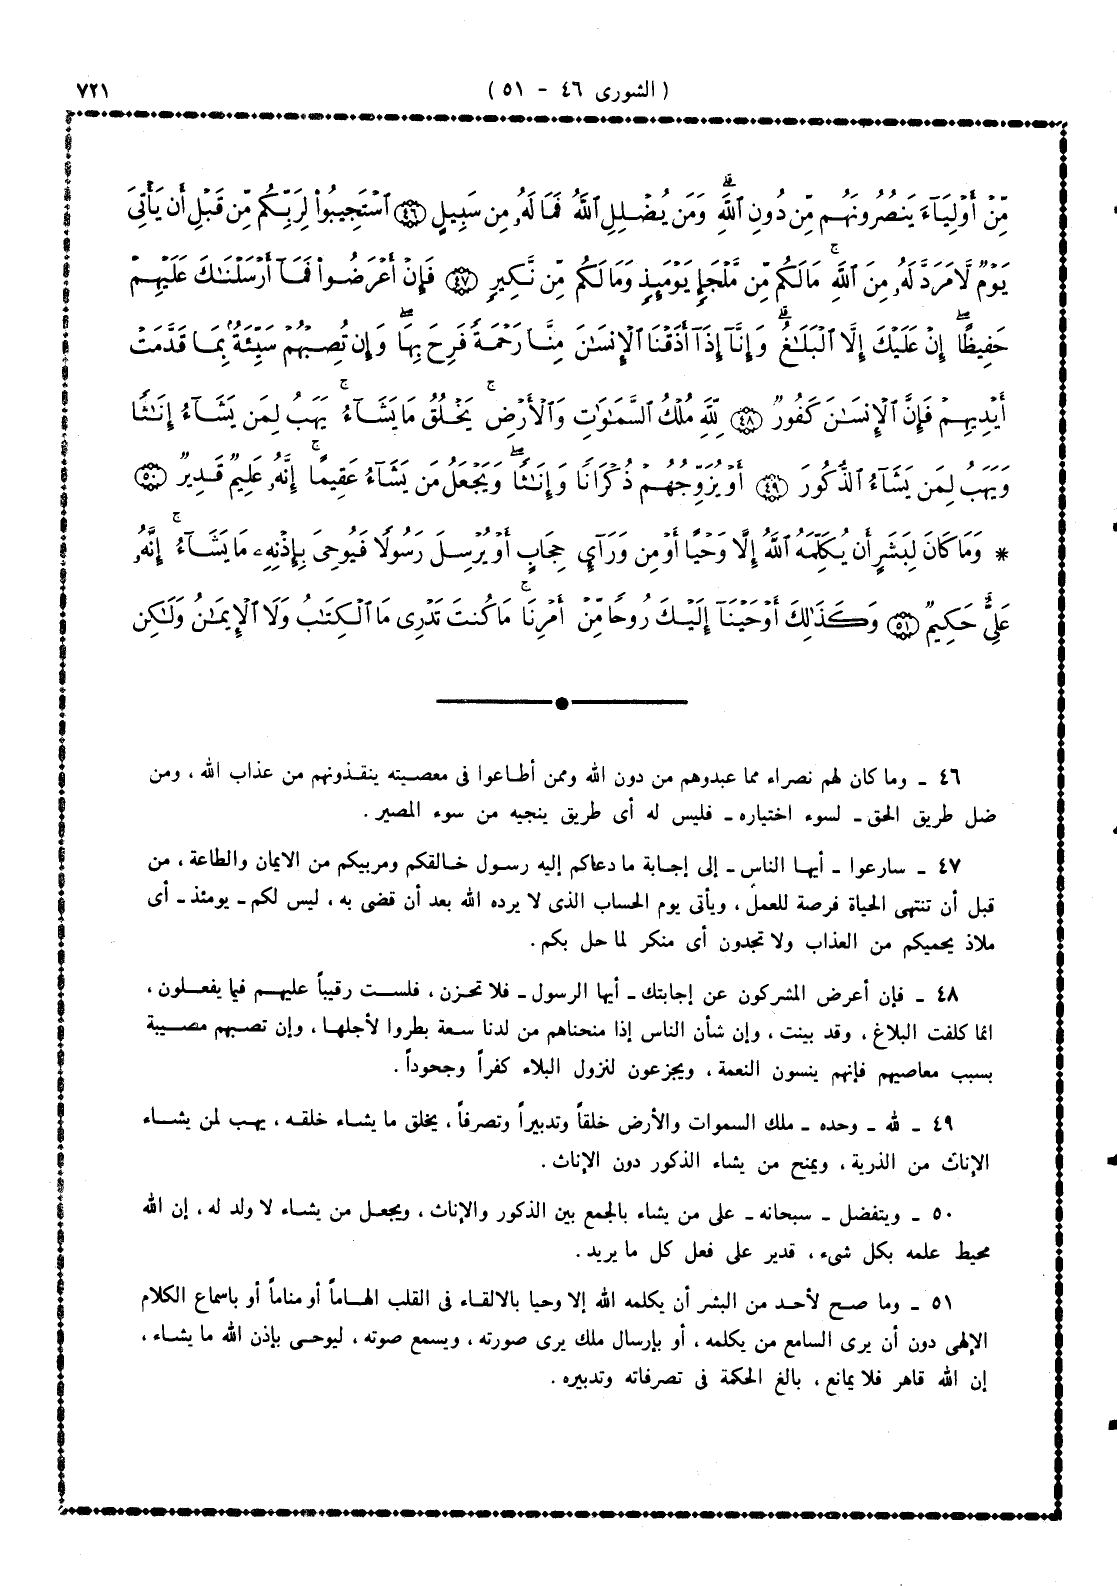 ( الشورى ٤٦ - ٥١ )
٧٢١
مِّنْ أَوْلِيَآءَ يَنصُرُونَهُم مِّن دُونِ ٱللَّهِ ۗ وَمَن يُضْلِلِ ٱللَّهُ فَمَا لَهُۥ مِن سَبِيلٍ ﴿٤٦﴾ ٱسْتَجِيبُوا۟ لِرَبِّكُم مِّن قَبْلِ أَن يَأْتِىَ
يَوْمٌ لَّا مَرَدَّ لَهُۥ مِنَ ٱللَّهِ ۚ مَا لَكُم مِّن مَّلْجَإٍ يَوْمَئِذٍ وَمَا لَكُم مِّن نَّكِيرٍ ﴿٤٧﴾ فَإِنْ أَعْرَضُوا۟ فَمَآ أَرْسَلْنَٰكَ عَلَيْهِمْ
حَفِيظًا ۖ إِنْ عَلَيْكَ إِلَّا ٱلْبَلَٰغُ ۗ وَإِنَّآ إِذَآ أَذَقْنَا ٱلْإِنسَٰنَ مِنَّا رَحْمَةً فَرِحَ بِهَا ۖ وَإِن تُصِبْهُمْ سَيِّئَةٌۢ بِمَا قَدَّمَتْ
أَيْدِيهِمْ فَإِنَّ ٱلْإِنسَٰنَ كَفُورٌ ﴿٤٨﴾ لِلَّهِ مُلْكُ ٱلسَّمَٰوَٰتِ وَٱلْأَرْضِ ۚ يَخْلُقُ مَا يَشَآءُ ۚ يَهَبُ لِمَن يَشَآءُ إِنَٰثًا
وَيَهَبُ لِمَن يَشَآءُ ٱلذُّكُورَ ﴿٤٩﴾ أَوْ يُزَوِّجُهُمْ ذُكْرَانًا وَإِنَٰثًا ۖ وَيَجْعَلُ مَن يَشَآءُ عَقِيمًا ۚ إِنَّهُۥ عَلِيمٌ قَدِيرٌ ﴿٥٠﴾
* وَمَا كَانَ لِبَشَرٍ أَن يُكَلِّمَهُ ٱللَّهُ إِلَّا وَحْيًا أَوْ مِن وَرَآئِ حِجَابٍ أَوْ يُرْسِلَ رَسُولًا فَيُوحِىَ بِإِذْنِهِۦ مَا يَشَآءُ ۚ إِنَّهُۥ
عَلِىٌّ حَكِيمٌ ﴿٥١﴾ وَكَذَٰلِكَ أَوْحَيْنَآ إِلَيْكَ رُوحًا مِّنْ أَمْرِنَا ۚ مَا كُنتَ تَدْرِى مَا ٱلْكِتَٰبُ وَلَا ٱلْإِيمَٰنُ وَلَٰكِن
٤٦ ـ وما كان لهم نصراء مما عبدوهم من دون الله وممن أطاعوا فى معصيته ينقذونهم من عذاب الله ، ومن
ضل طريق الحق ـ لسوء اختياره ـ فليس له أى طريق ينجيه من سوء المصير .
٤٧ ـ سارعوا ـ أيها الناس ـ إلى إجابة ما دعاكم إليه رسول خالقكم ومربيكم من الايمان والطاعة ، من
قبل أن تنتهى الحياة فرصة للعمل ، ويأتى يوم الحساب الذى لا يرده الله بعد أن قضى به ، ليس لكم ـ يومئذ ـ أى
ملاذ يحميكم من العذاب ولا تجدون أى منكر لما حل بكم .
٤٨ ـ فإن أعرض المشركون عن إجابتك ـ أيها الرسول ـ فلا تحزن ، فلست رقيباً عليهم فيما يفعلون ،
انما كلفت البلاغ ، وقد بينت ، وإن شأن الناس إذا منحناهم من لدنا سعة بطروا لأجلها ، وإن تصبهم مصيبة
بسبب معاصيهم فإنهم ينسون النعمة ، ويجزعون لنزول البلاء كفراً وجحوداً .
٤٩ ـ لله ـ وحده ـ ملك السموات والأرض خلقاً وتدبيراً وتصرفاً ، يخلق ما يشاء خلقه ، يهب لمن يشاء
الإناث من الذرية ، ويمنح من يشاء الذكور دون الإناث .
٥٠ ـ ويتفضل ـ سبحانه ـ على من يشاء بالجمع بين الذكور والإناث ، ويجعل من يشاء لا ولد له ، إن الله
محيط علمه بكل شىء ، قدير على فعل كل ما يريد .
٥١ ـ وما صح لأحد من البشر أن يكلمه الله إلا وحيا بالالقاء فى القلب الهاماً أو مناماً أو باسماع الكلام
الإلهى دون أن يرى السامع من يكلمه ، أو بإرسال ملك يرى صورته ، ويسمع صوته ، ليوحى بإذن الله ما يشاء ،
إن الله قاهر فلا يمانع ، بالغ الحكمة فى تصرفاته وتدبيره .